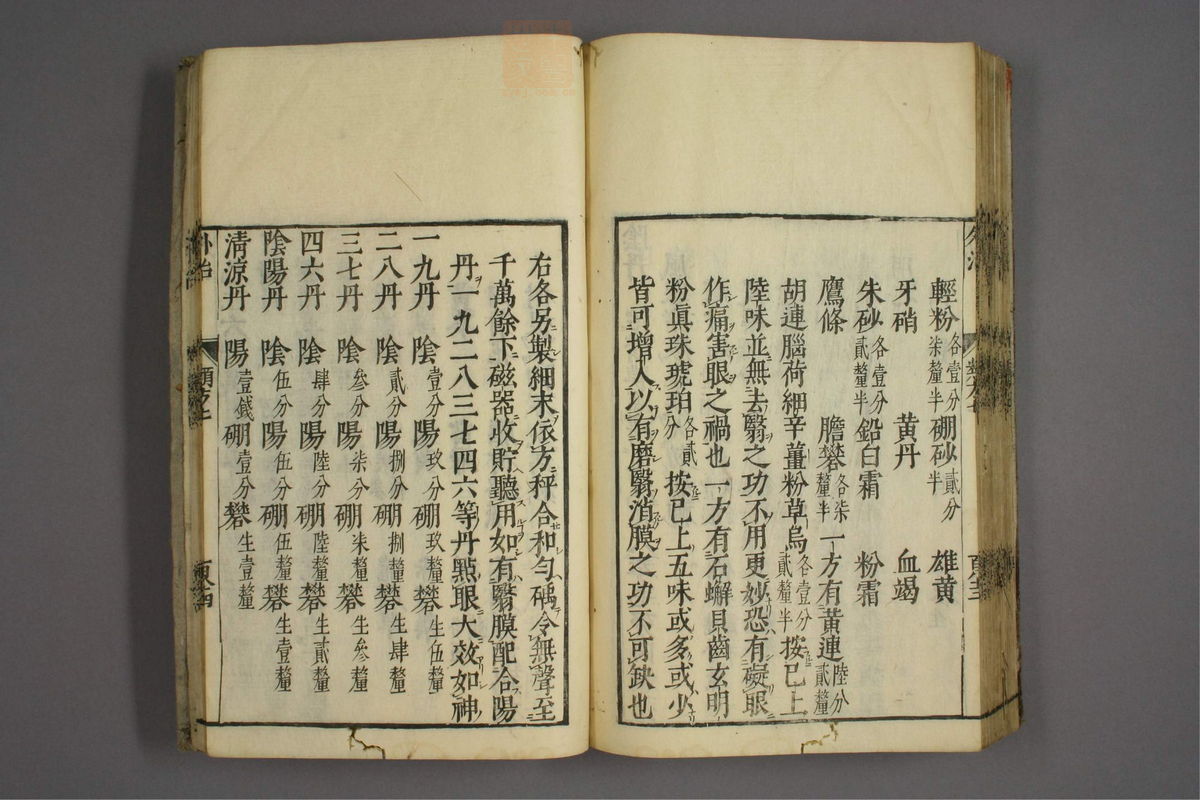 輕粉各壹分柒釐半 硼砂貳分半 雄黄
牙硝 黄丹 血竭
朱砂各壹分貳釐半 鉛白霜 粉霜
鷹條 膽礬各柒釐半 一方有黄連陸分貳釐
胡連腦荷細辛薑粉草烏各壹分貳釐半按已上
陸味並無去翳之功不用更妙恐有礙眼
作痛害眼之禍也一方有石蠏貝齒玄明
粉眞珠琥珀各貳分按已上五味或多或少
皆可增入以有磨翳消膜之功不可缺也
右各另製細末依方秤合和勻碯令無聲至
千萬餘下磁器收貯聽用如有翳膜配合陽
丹一九二八三七四六等丹㸃眼大效如神
一九丹 陰壹分陽玖分硼玖釐礬生伍釐
二八丹 陰貳分陽捌分硼捌釐礬生肆釐
三七丹 陰叄分陽柒分硼柒釐礬生叄釐
四六丹 陰肆分陽陸分硼陸釐礬生貳釐
陰陽丹 陰伍分陽伍分硼伍釐礬生壹釐
清涼丹 陽壹錢硼壹分礬生壹釐
外治